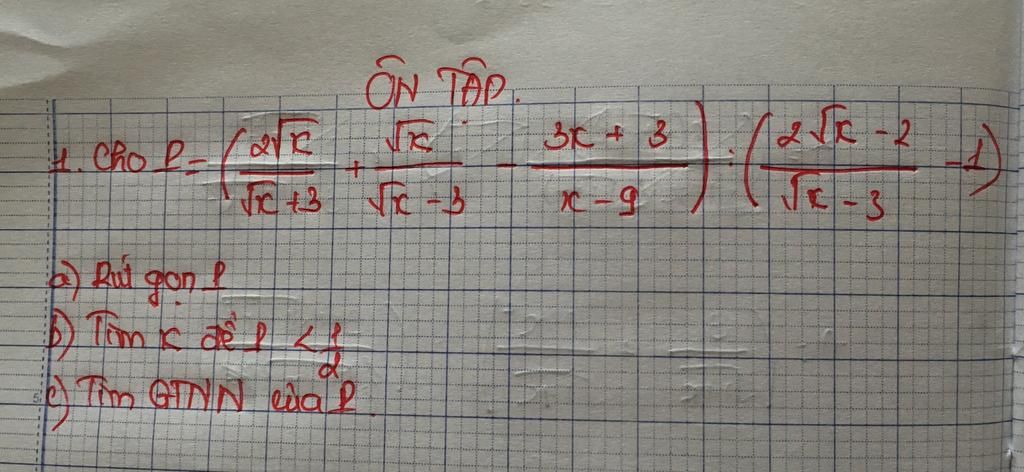 ÔN TẬP.
1. Cho P = (2√x / √x + 3 + √x / √x - 3 - 3x + 3 / x - 9) : (2√x - 2 / √x - 3 - 1)
a) Rút gọn P
b) Tìm x để P < 1/2
c) Tìm GTNN của P.